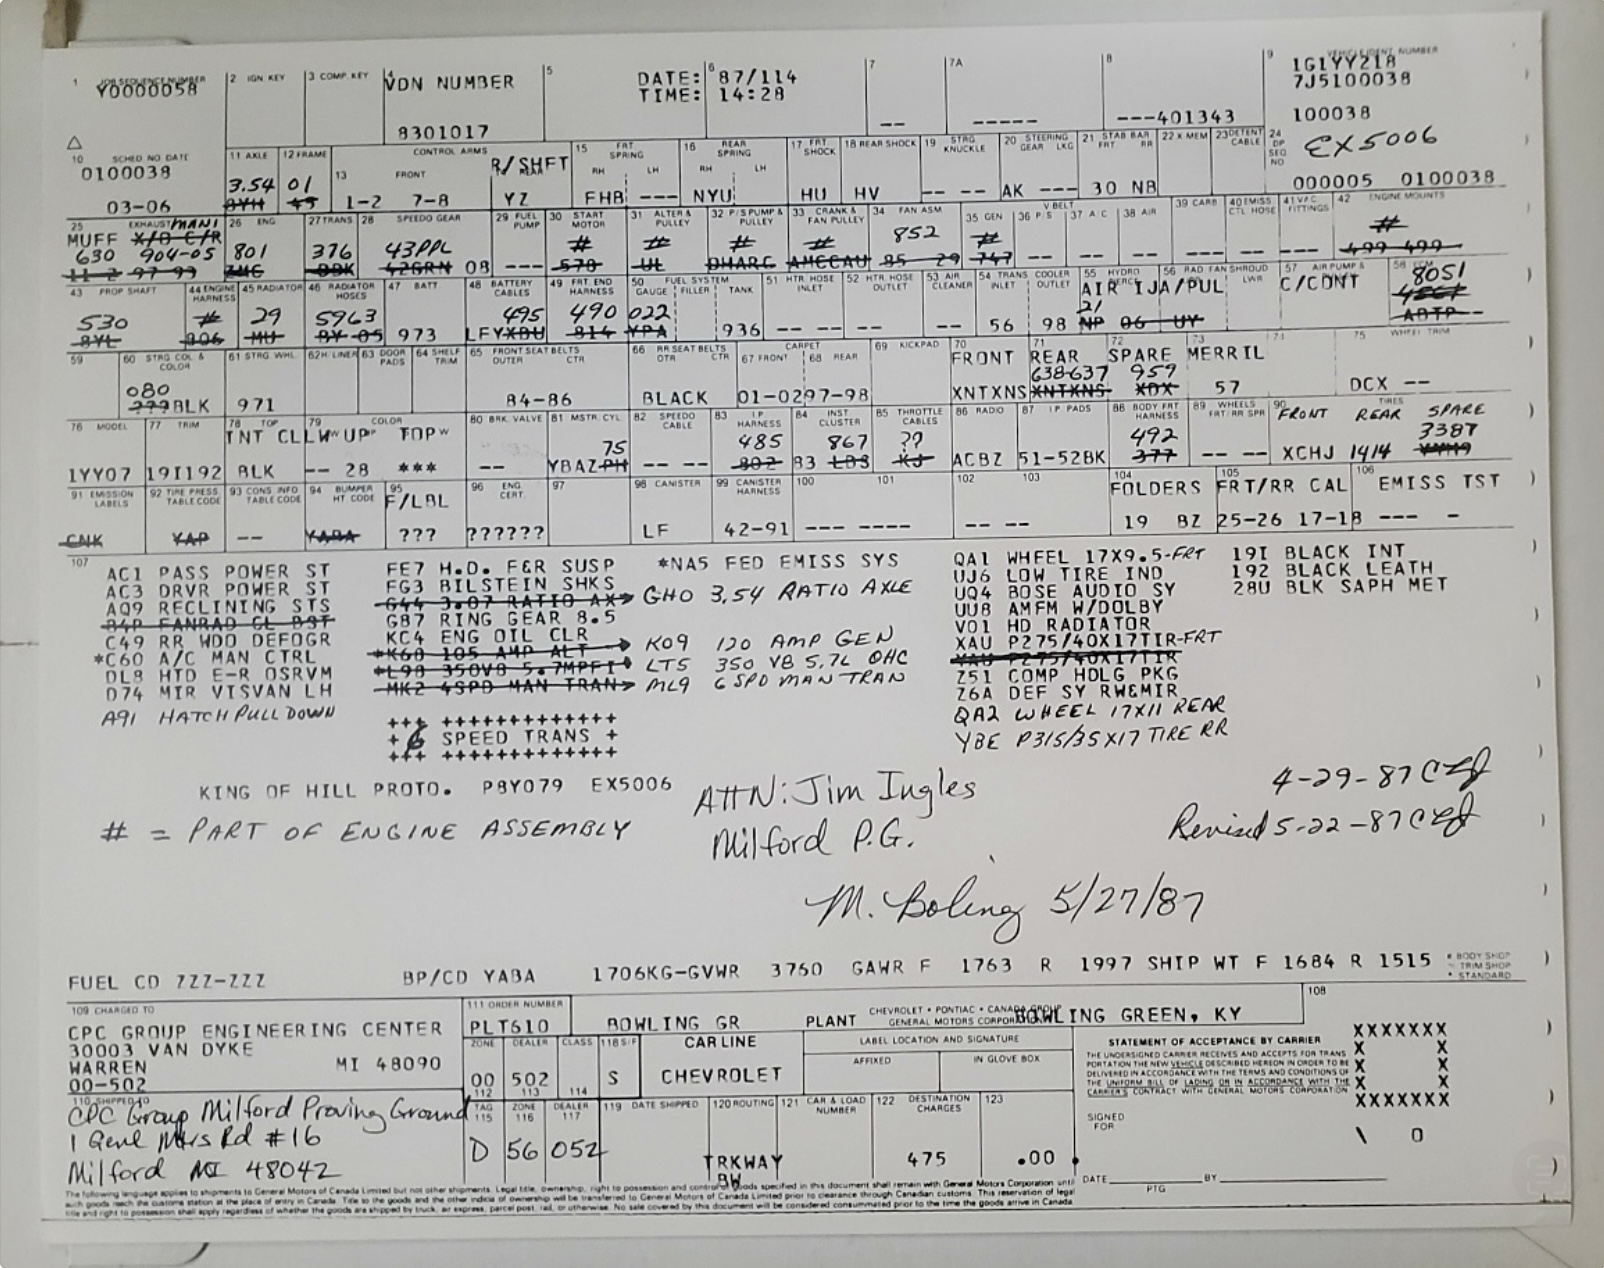 1 JOB SEQUENCE NUMBER 2 IGN KEY 3 COMP. KEY 4 VDN NUMBER 5 DATE: 6 87/114 7 7A 8 9 VEHICLE IDENT NUMBER
Y0000058 TIME: 14:28 1G1YY218
7J5100038
8301017 -- ----- ---401343 100038
10 SCHED NO DATE 11 AXLE 12 FRAME CONTROL ARMS R/SHFT 15 FRT SPRING 16 REAR SPRING 17 FRT SHOCK 18 REAR SHOCK 19 STRG KNUCKLE 20 STEERING GEAR LKG 21 STAB BAR FRT RR 22 X MEM 23 DETENT CABLE 24 DP SEQ NO EX5006
0100038 3.54 01 13 FRONT RH LH RH LH
03-06 BYH 45 1-2 7-8 YZ FHB --- NYU HU HV -- -- AK --- 30 NB 000005 0100038
25 EXHAUST MANI 26 ENG 27 TRANS 28 SPEEDO GEAR 29 FUEL PUMP 30 START MOTOR 31 ALTER & PULLEY 32 P/S PUMP & PULLEY 33 CRANK & FAN PULLEY 34 FAN ASM V BELT 35 GEN 36 P/S 37 A/C 38 AIR 39 CARB 40 EMISS CTL HOSE 41 VAC FITTINGS 42 ENGINE MOUNTS
MUFF X/O C/R # # # # 852 # #
630 904-05 801 376 43PPL
11-2 97-99 ZMG BBK 42GRN 08 --- 578 UL DHARC AMCCAU 85 29 747 -- -- -- -- --- -- --- 499 499
43 PROP SHAFT 44 ENGINE HARNESS 45 RADIATOR 46 RADIATOR HOSES 47 BATT 48 BATTERY CABLES 49 FRT. END HARNESS 50 FUEL SYSTEM GAUGE FILLER TANK 51 HTR. HOSE INLET 52 HTR. HOSE OUTLET 53 AIR CLEANER 54 TRANS COOLER INLET OUTLET 55 HYDRO 56 RAD FAN SHROUD LWR 57 AIR PUMP & 58 ECM
AIR IJA/PUL C/CONT 8051
530 # 29 5963 495 490 022 21
8YL 806 MU BY 05 973 LFYXBU 814 YPA 936 -- -- -- -- -- 56 98 NP 06 UY ADTP
59 60 STRG COL & COLOR 61 STRG WHL 62 H LINER 63 DOOR PADS 64 SHELF TRIM 65 FRONT SEAT BELTS OUTER CTR 66 RR SEAT BELTS OTR CTR CARPET 67 FRONT 68 REAR 69 KICKPAD 70 FRONT 71 REAR 72 SPARE 73 MERRIL 74 75 WHEEL TRIM
080 638-637 959
???BLK 971 84-86 BLACK 01-0297-98 XNTXNS XNTXNS XDX 57 DCX --
76 MODEL 77 TRIM 78 TOP 79 COLOR 80 BRK. VALVE 81 MSTR. CYL 82 SPEEDO CABLE 83 I.P HARNESS 84 INST CLUSTER 85 THROTTLE CABLES 86 RADIO 87 I.P. PADS 88 BODY FRT HARNESS 89 WHEELS FRT/RR SPR 90 TIRES FRONT REAR SPARE
TNT CLLW UP TOP 75 485 867 ?? 492 3387
1YY07 19I192 BLK -- 28 *** -- YBAZPH -- -- 802 83 LBS KJ ACBZ 51-52BK 377 -- -- XCHJ 1414
91 EMISSION LABELS 92 TIRE PRESS TABLE CODE 93 CONS INFO TABLE CODE 94 BUMPER HT CODE 95 F/LBL 96 ENG CERT. 97 98 CANISTER 99 CANISTER HARNESS 100 101 102 103 104 FOLDERS 105 FRT/RR CAL 106 EMISS TST
CNK YAP -- YABA ??? ?????? LF 42-91 --- ---- -- -- 19 BZ 25-26 17-18 --- -
107
AC1 PASS POWER ST FE7 H.D. F&R SUSP *NA5 FED EMISS SYS QA1 WHEEL 17X9.5-FRT 19I BLACK INT
AC3 DRVR POWER ST FG3 BILSTEIN SHKS UJ6 LOW TIRE IND 192 BLACK LEATH
AQ9 RECLINING STS G44 3.07 RATIO AX→ GH0 3.54 RATIO AXLE UQ4 BOSE AUDIO SY 28U BLK SAPH MET
B4P FANRAD CL BST G87 RING GEAR 8.5 UU8 AMFM W/DOLBY
C49 RR WDO DEFOGR KC4 ENG OIL CLR V01 HD RADIATOR
*C60 A/C MAN CTRL *K68 105 AMP ALT → K09 120 AMP GEN XAU P275/40X17TIR-FRT
DL8 HTD E-R OSRVM *L98 350V8 5.7MPFI→ LT5 350 V8 5.7L OHC YAU P275/40X17TIR
D74 MIR VISVAN LH MK2 4SPD MAN TRAN→ ML9 6 SPD MAN TRAN Z51 COMP HDLG PKG
A91 HATCH PULL DOWN Z6A DEF SY RW&MIR
+++ +++++++++++++ QA2 WHEEL 17X11 REAR
+ 6 SPEED TRANS + YBE P315/35X17 TIRE RR
+++ +++++++++++++
KING OF HILL PROTO. P8Y079 EX5006 ATTN: Jim Ingles 4-29-87
# = PART OF ENGINE ASSEMBLY Milford P.G. Revised 5-22-87
M. Boling 5/27/87
FUEL CD ZZZ-ZZZ BP/CD YABA 1706KG-GVWR 3760 GAWR F 1763 R 1997 SHIP WT F 1684 R 1515 * BODY SHOP
~ TRIM SHOP
* STANDARD
109 CHARGED TO 111 ORDER NUMBER CHEVROLET • PONTIAC • CANADA GROUP 108
CPC GROUP ENGINEERING CENTER PLT610 BOWLING GR PLANT GENERAL MOTORS CORPORATION BOWLING GREEN, KY
30003 VAN DYKE ZONE DEALER CLASS 118 S/F CAR LINE LABEL LOCATION AND SIGNATURE STATEMENT OF ACCEPTANCE BY CARRIER XXXXXXX
WARREN MI 48090 AFFIXED IN GLOVE BOX THE UNDERSIGNED CARRIER RECEIVES AND ACCEPTS FOR TRANS X X
PORTATION THE NEW VEHICLE DESCRIBED HEREON IN ORDER TO BE X X
00-502 00 502 S CHEVROLET DELIVERED IN ACCORDANCE WITH THE TERMS AND CONDITIONS OF X X
112 113 114 THE UNIFORM BILL OF LADING OR IN ACCORDANCE WITH THE X X
CARRIER'S CONTRACT WITH GENERAL MOTORS CORPORATION XXXXXXX
110 SHIPPED TO TAG 115 ZONE 116 DEALER 117 119 DATE SHIPPED 120 ROUTING 121 CAR & LOAD NUMBER 122 DESTINATION CHARGES 123 SIGNED FOR \ 0
CPC Group Milford Proving Ground
1 Genl Mtrs Rd #16 D 56 052 TRKWAY 475 .00
Milford MI 48042 BW DATE BY
PTG
The following language applies to shipments to General Motors of Canada Limited but not other shipments. Legal title, ownership, right to possession and control of goods specified in this document shall remain with General Motors Corporation until
such goods reach the customs station at the place of entry in Canada. Title to the goods and the other indicia of ownership will be transferred to General Motors of Canada Limited prior to clearance through Canadian customs. This reservation of legal
title and right to possession shall apply regardless of whether the goods are shipped by truck, air express, parcel post, rail, or otherwise. No sale covered by this document will be considered consummated prior to the time the goods arrive in Canada.